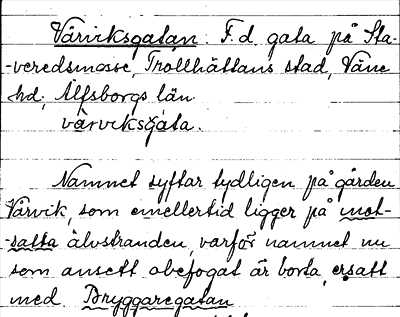 Vårviksgatan. F.d. gata på Sta-
-veredsmosse, Trollhättans stad, Väne
hd, Älfsborgs län
vårviksgata.
Namnet syftar tydligen på gården
Vårvik, som emellertid ligger på mot-
-satta älvstranden, varför namnet nu
som ansett obefogat är borta, ersatt
med Bryggaregatan